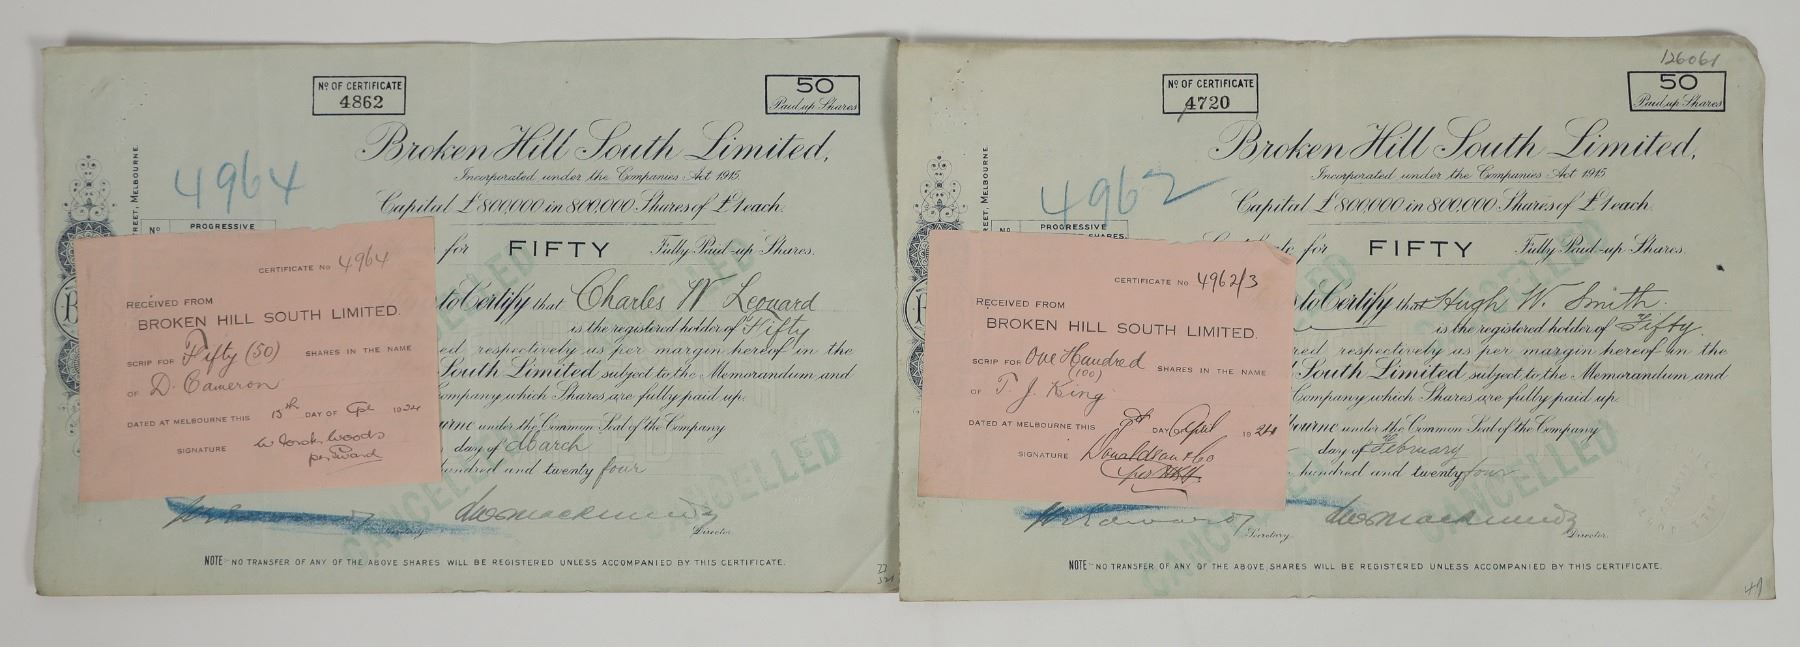 Nº OF CERTIFICATE
4862
50
Paid up Shares
Broken Hill South Limited,
Incorporated under the Companies Act 1915.
4964
Capital £800,000 in 800,000 Shares of £1 each.
STREET, MELBOURNE
Nº PROGRESSIVE
for FIFTY Fully Paid-up Shares.
to Certify that Charles W Leonard
is the registered holder of Fifty
respectively as per margin hereof in the
South Limited subject to the Memorandum and
Company which Shares are fully paid up.
under the Common Seal of the Company
day of March
hundred and twenty four
Secretary. Director.
CANCELLED
CANCELLED
CANCELLED
NOTE - NO TRANSFER OF ANY OF THE ABOVE SHARES WILL BE REGISTERED UNLESS ACCOMPANIED BY THIS CERTIFICATE.
CERTIFICATE No 4964
RECEIVED FROM
BROKEN HILL SOUTH LIMITED.
SCRIP FOR Fifty (50) SHARES IN THE NAME
OF D. Cameron
DATED AT MELBOURNE THIS 15th DAY OF Apl 1924
SIGNATURE
126061
Nº OF CERTIFICATE
4720
50
Paid up Shares
Broken Hill South Limited,
Incorporated under the Companies Act 1915.
4962
Capital £800,000 in 800,000 Shares of £1 each.
STREET, MELBOURNE
Nº PROGRESSIVE
SHARES.
for FIFTY Fully Paid-up Shares.
to Certify that Hugh W. Smith.
is the registered holder of Fifty
respectively as per margin hereof in the
South Limited subject to the Memorandum and
Company which Shares are fully paid up.
under the Common Seal of the Company
day of February
hundred and twenty four
Secretary. Director.
CANCELLED
CANCELLED
CANCELLED
NOTE - NO TRANSFER OF ANY OF THE ABOVE SHARES WILL BE REGISTERED UNLESS ACCOMPANIED BY THIS CERTIFICATE.
CERTIFICATE No 4962/3
RECEIVED FROM
BROKEN HILL SOUTH LIMITED.
SCRIP FOR One Hundred SHARES IN THE NAME
(100)
OF T. J. King
DATED AT MELBOURNE THIS DAY April 1924
SIGNATURE Donaldson & Co